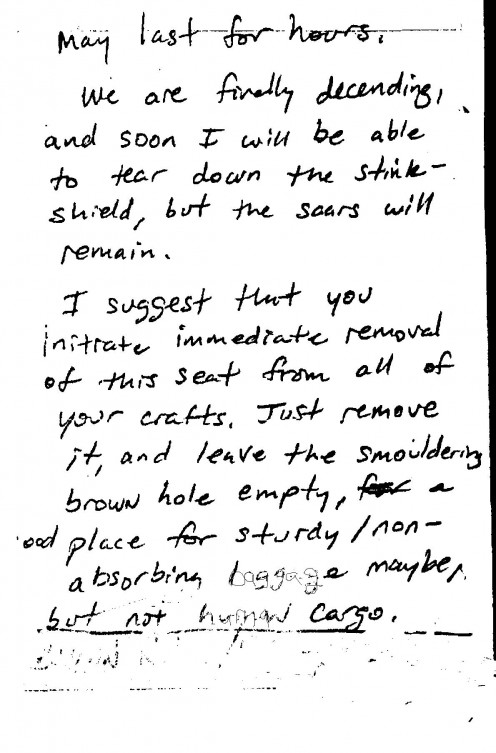 may last for hours.
We are finally decending,
and soon I will be able
to tear down the stink-
shield, but the scars will
remain.
I suggest that you
initiate immediate removal
of this seat from all of
your crafts. Just remove
it, and leave the smouldering
brown hole empty, for a
ood place for sturdy/non-
absorbing baggage maybe,
but not human cargo.